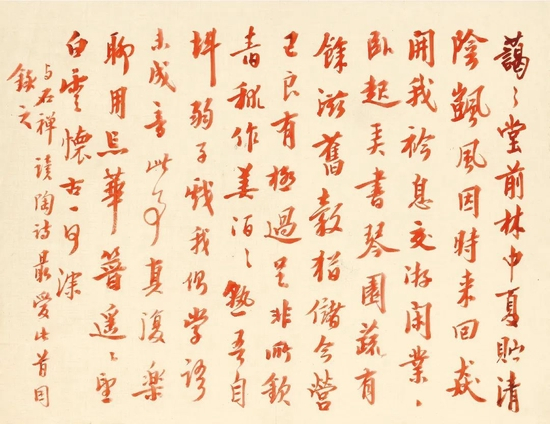 藹〻堂前林中夏貯清
陰颽風因時来回飈
開我衿息交游閑業、
卧起弄書琴園蔬有
餘滋舊穀猶儲今營
己良有極過足非所欽
舂秫作美酒〻熟吾自
斟弱子戲我側學語
未成音此事真復樂
聊用忘華簪遥〻望
白雲懷古一何深
与石禪讀陶詩最愛此首因
錄之